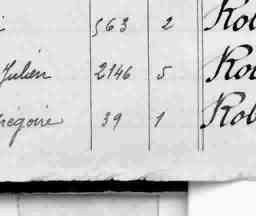 563 2 Rol
Julien 2146 5 Rol
régoire 39 1 Rol